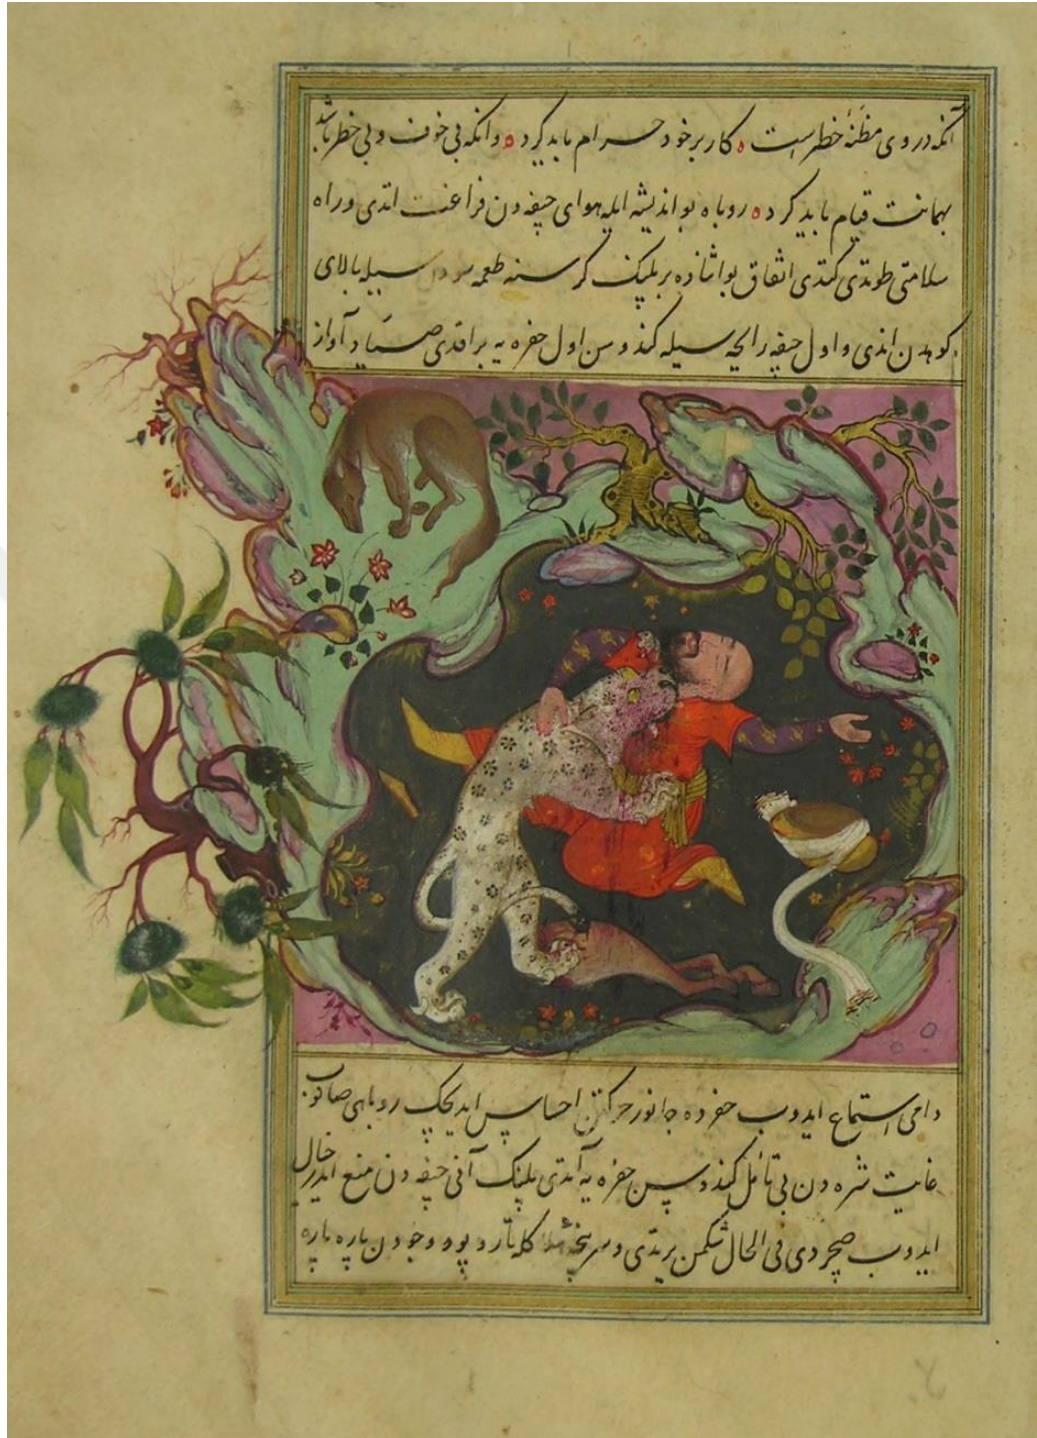 آنکه در وی مظنهٔ خطر است کار بر خود حرام باید کرد وانکه بی خوف و بی خطر باشد
بهمانت قیام باید کرد روباه بو اندیشه ایله هوای جیفه دن فراغت اتدی وراه
سلامتی طوتدی کتدی اتفاق بو اثناده بر پلنک کرسنه طعمه سیله بالای
کوهدن اندی واول جیفه رایحه سیله کندوسن اول حفره یه براقدی صیاد آواز
دامی استماع ایدوب حفره ده جانور حرکتن احساس ایدیجک روباهی صانوب
غایت شره دن بی تأمل کندوسن حفره یه آتدی پلنک آنی جیفه دن منع ایدر خیال
ایدوب صچردی فی الحال شکمن یرتدی وسرپنجه کله تار و پود وجودن پاره پاره